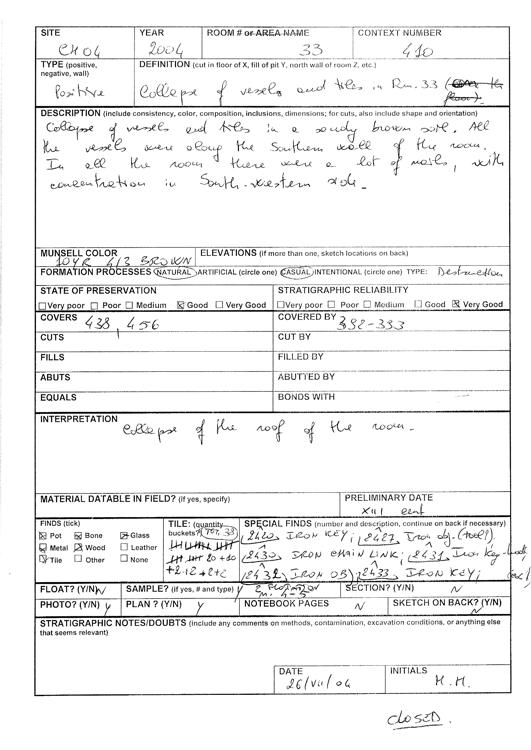 SITE YEAR ROOM # or AREA NAME CONTEXT NUMBER
CH04 2004 33 410
TYPE (positive, negative, wall) DEFINITION (cut in floor of X, fill of pit Y, north wall of room Z, etc.)
Positive Collapse of vessels and tiles in Rm. 33
DESCRIPTION (include consistency, color, composition, inclusions, dimensions; for cuts, also include shape and orientation)
Collapse of vessels and tiles in a sandy brown soil. All
the vessels were along the Southern wall of the room.
In all the room there were a lot of nails, with
concentration in South-western side.
MUNSELL COLOR ELEVATIONS (if more than one, sketch locations on back)
10YR 4/3 BROWN
FORMATION PROCESSES NATURAL/ARTIFICIAL (circle one) CASUAL/INTENTIONAL (circle one) TYPE: Destruction
STATE OF PRESERVATION STRATIGRAPHIC RELIABILITY
Very poor Poor Medium Good Very Good Very poor Poor Medium Good Very Good
COVERS 438, 456 COVERED BY 392-393
CUTS CUT BY
FILLS FILLED BY
ABUTS ABUTTED BY
EQUALS BONDS WITH
INTERPRETATION
Collapse of the roof of the room.
MATERIAL DATABLE IN FIELD? (if yes, specify) PRELIMINARY DATE
XIII cent
FINDS (tick) TILE: (quantity buckets) TOT. 38 SPECIAL FINDS (number and description, continue on back if necessary)
Pot Bone Glass 2420 IRON KEY; 2427 Iron obj. (tool?)
Metal Wood Leather 20+10 2430 IRON CHAIN LINK; 2431 Iron key-
Tile Other None +2+2+2+2 2432 IRON OBJ; 2433 IRON KEY;
FLOAT? (Y/N) N SAMPLE? (if yes, # and type) Y SECTION? (Y/N) N
PHOTO? (Y/N) Y PLAN? (Y/N) Y NOTEBOOK PAGES N SKETCH ON BACK? (Y/N) N
STRATIGRAPHIC NOTES/DOUBTS (include any comments on methods, contamination, excavation conditions, or anything else that seems relevant)
DATE INITIALS
26/VII/04 M.M.
CLOSED.